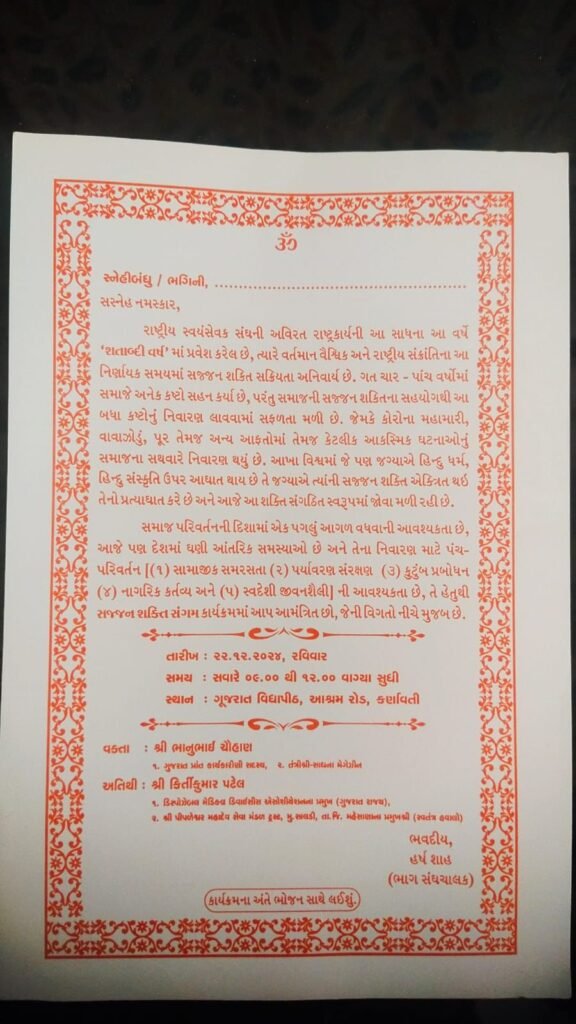 ૐ
સ્નેહીબંધુ / ભગિની, ........................................
સસ્નેહ નમસ્કાર,
રાષ્ટ્રીય સ્વયંસેવક સંઘની અવિરત રાષ્ટ્રકાર્યની આ સાધના આ વર્ષે
‘શતાબ્દી વર્ષ’ માં પ્રવેશ કરેલ છે, ત્યારે વર્તમાન વૈશ્વિક અને રાષ્ટ્રીય સંક્રાંતિના આ
નિર્ણાયક સમયમાં સજ્જન શકિત સક્રિયતા અનિવાર્ય છે. ગત ચાર - પાંચ વર્ષોમાં
સમાજે અનેક કષ્ટો સહન કર્યા છે, પરંતુ સમાજની સજ્જન શકિતના સહયોગથી આ
બધા કષ્ટોનું નિવારણ લાવવામાં સફળતા મળી છે. જેમકે કોરોના મહામારી,
વાવાઝોડું, પૂર તેમજ અન્ય આફતોમાં તેમજ કેટલીક આકસ્મિક ઘટનાઓનું
સમાજના સથવારે નિવારણ થયું છે. આખા વિશ્વમાં જે પણ જગ્યાએ હિન્દુ ધર્મ,
હિન્દુ સંસ્કૃતિ ઉપર આઘાત થાય છે તે જગ્યાએ ત્યાંની સજ્જન શકિત એકત્રિત થઇ
તેનો પ્રત્યાઘાત કરે છે અને આજે આ શકિત સંગઠિત સ્વરૂપમાં જોવા મળી રહી છે.
સમાજ પરિવર્તનની દિશામાં એક પગલું આગળ વધવાની આવશ્યકતા છે,
આજે પણ દેશમાં ઘણી આંતરિક સમસ્યાઓ છે અને તેના નિવારણ માટે પંચ-
પરિવર્તન [(૧) સામાજીક સમરસતા (૨) પર્યાવરણ સંરક્ષણ (૩) કુટુંબ પ્રબોધન
(૪) નાગરિક કર્તવ્ય અને (૫) સ્વદેશી જીવનશૈલી] ની આવશ્યકતા છે, તે હેતુથી
સજ્જન શકિત સંગમ કાર્યક્રમમાં આપ આમંત્રિત છો, જેની વિગતો નીચે મુજબ છે.
તારીખ : ૨૨.૧૨.૨૦૨૪, રવિવાર
સમય : સવારે ૦૯.૦૦ થી ૧૨.૦૦ વાગ્યા સુધી
સ્થાન : ગૂજરાત વિદ્યાપીઠ, આશ્રમ રોડ, કર્ણાવતી
વક્તા : શ્રી ભાનુભાઈ ચૌહાણ
૧. ગુજરાત પ્રાંત કાર્યકારીણી સદસ્ય, ૨. તંત્રીશ્રી-સાધના મેગેઝીન
અતિથી : શ્રી કિર્તીકુમાર પટેલ
૧. ડિસ્પોઝેબલ મેડિકલ ડિવાઈસીસ એસોશીયેશનના પ્રમુખ (ગુજરાત રાજ્ય),
૨. શ્રી પીપળેશ્વર મહાદેવ સેવા મંડળ ટ્રસ્ટ, મુ.સાલડી, તા.જિ. મહેસાણાના પ્રમુખશ્રી (સ્વતંત્ર હવાલો)
ભવદીય,
હર્ષ શાહ
(ભાગ સંઘચાલક)
કાર્યક્રમના અંતે ભોજન સાથે લઈશું.